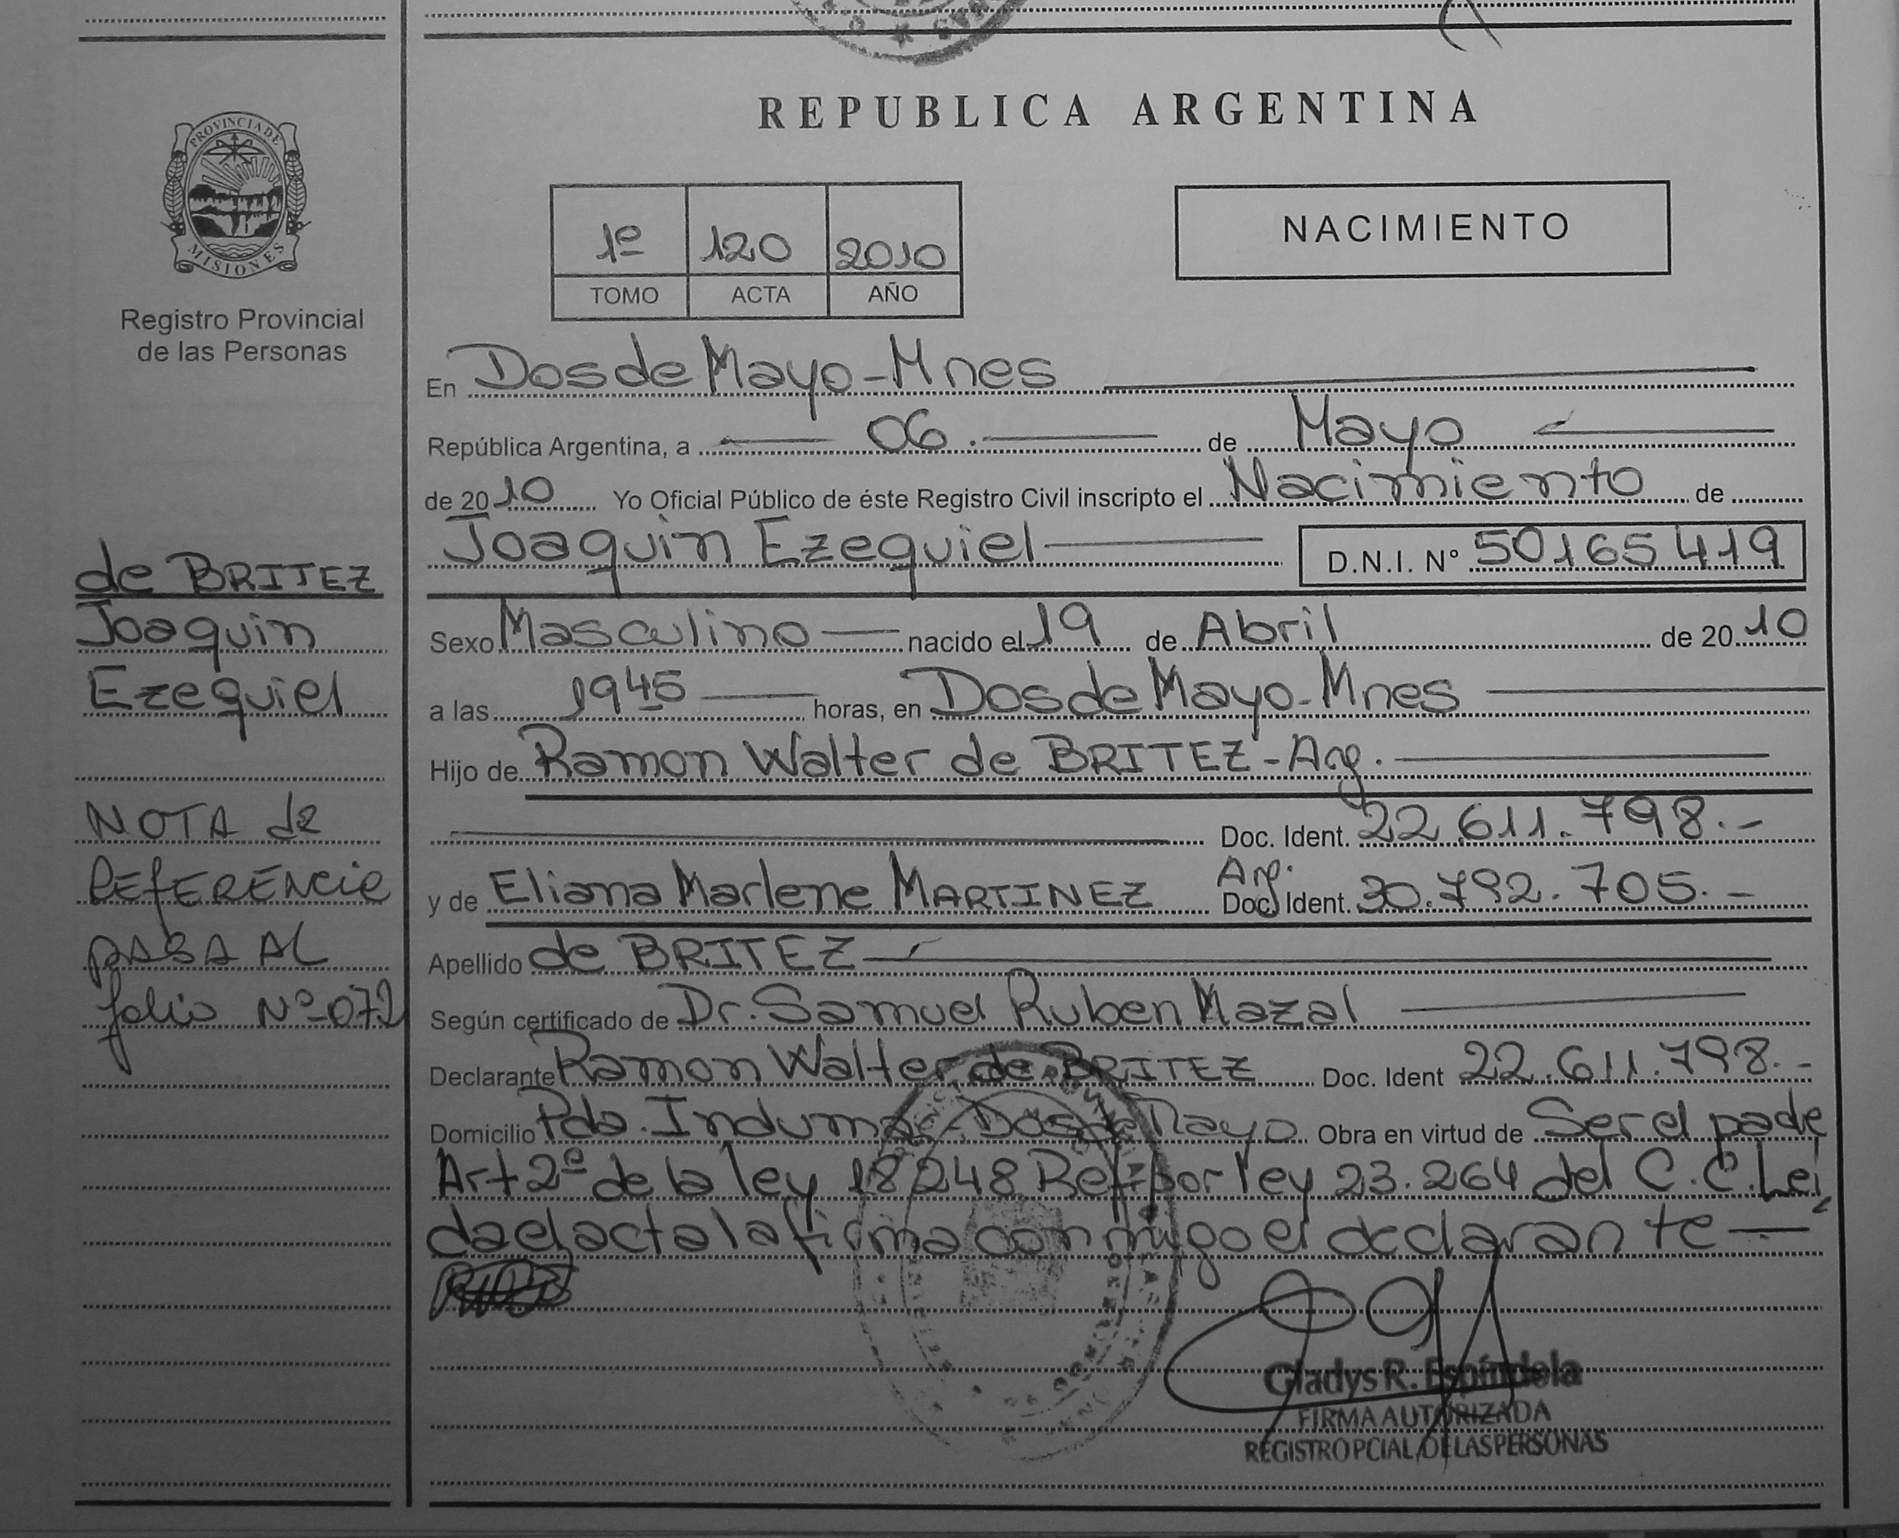 REPUBLICA ARGENTINA
PROVINCIA DE
MISIONES
Registro Provincial
de las Personas
1º 120 2010
TOMO ACTA AÑO
NACIMIENTO
En Dos de Mayo - Mnes
República Argentina, a 06 de Mayo
de 2010 Yo Oficial Público de éste Registro Civil inscripto el Nacimiento de
Joaquin Ezequiel D.N.I. Nº 50165419
Sexo Masculino nacido el 19 de Abril de 2010
a las 1945 horas, en Dos de Mayo - Mnes
Hijo de Ramon Walter de BRITEZ - Arg.
Doc. Ident. 22.611.798.-
y de Eliana Marlene MARTINEZ Arg. Doc. Ident. 30.792.705.-
Apellido de BRITEZ
Según certificado de Dr. Samuel Ruben Mazal
Declarante Ramon Walter de BRITEZ Doc. Ident 22.611.798.-
Domicilio Pda. Indumar - Dos de Mayo Obra en virtud de Ser el padre
Art 2º de la ley 18248 Ref por ley 23.264 del C.C. Lei
da el acta la firma conmigo el declarante
Gladys R. Espíndola
FIRMA AUTORIZADA
REGISTRO PCIAL. DE LAS PERSONAS
de BRITEZ
Joaquin
Ezequiel
NOTA de
REFERENCIA
PASA AL
folio Nº 072